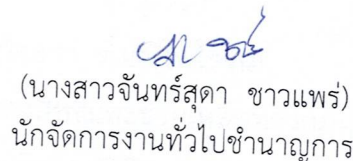 (นางสาวจันทร์สุดา ชาวแพร่)
นักจัดการงานทั่วไปชำนาญการ